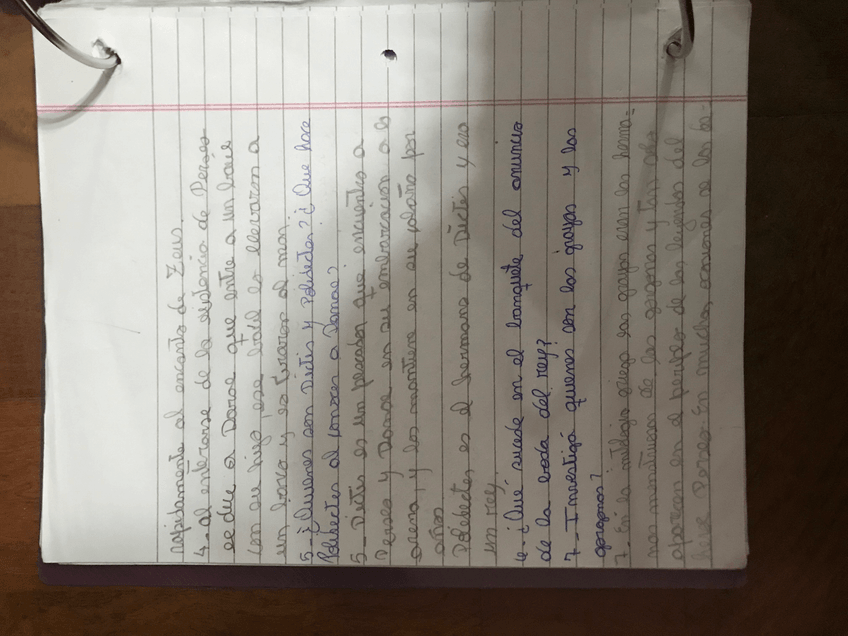 rapidamente al encanto de Zeus.
4- al enterarse de la existencia de Perseo
a Danae que entre a un baul
con su hijo, ese baúl lo llevaron a
un barco y lo tiraron al mar.
5- ¿Quienes son Dictis y Polidectes? ¿Que hace
Polidectes al conocer a Danae?
5- Dictis es un pescador que encuentra a
Perseo y Danae en su embarcacion a la
arena, y los mantiene en su por
años.
Polidectes es el hermano de Dictis y era
un rey.
6- ¿Qué sucede en el banquete del anuncio
de la boda del rey?
7- Investigá quienes son las grayas y las
gorgonas?
7. En la griega las grayas eran las herma-
nas de las gorgonas y tan solo
aparecen en el periplo de las leyendas del
heroe Perseo. En mucha, ocaciones se las